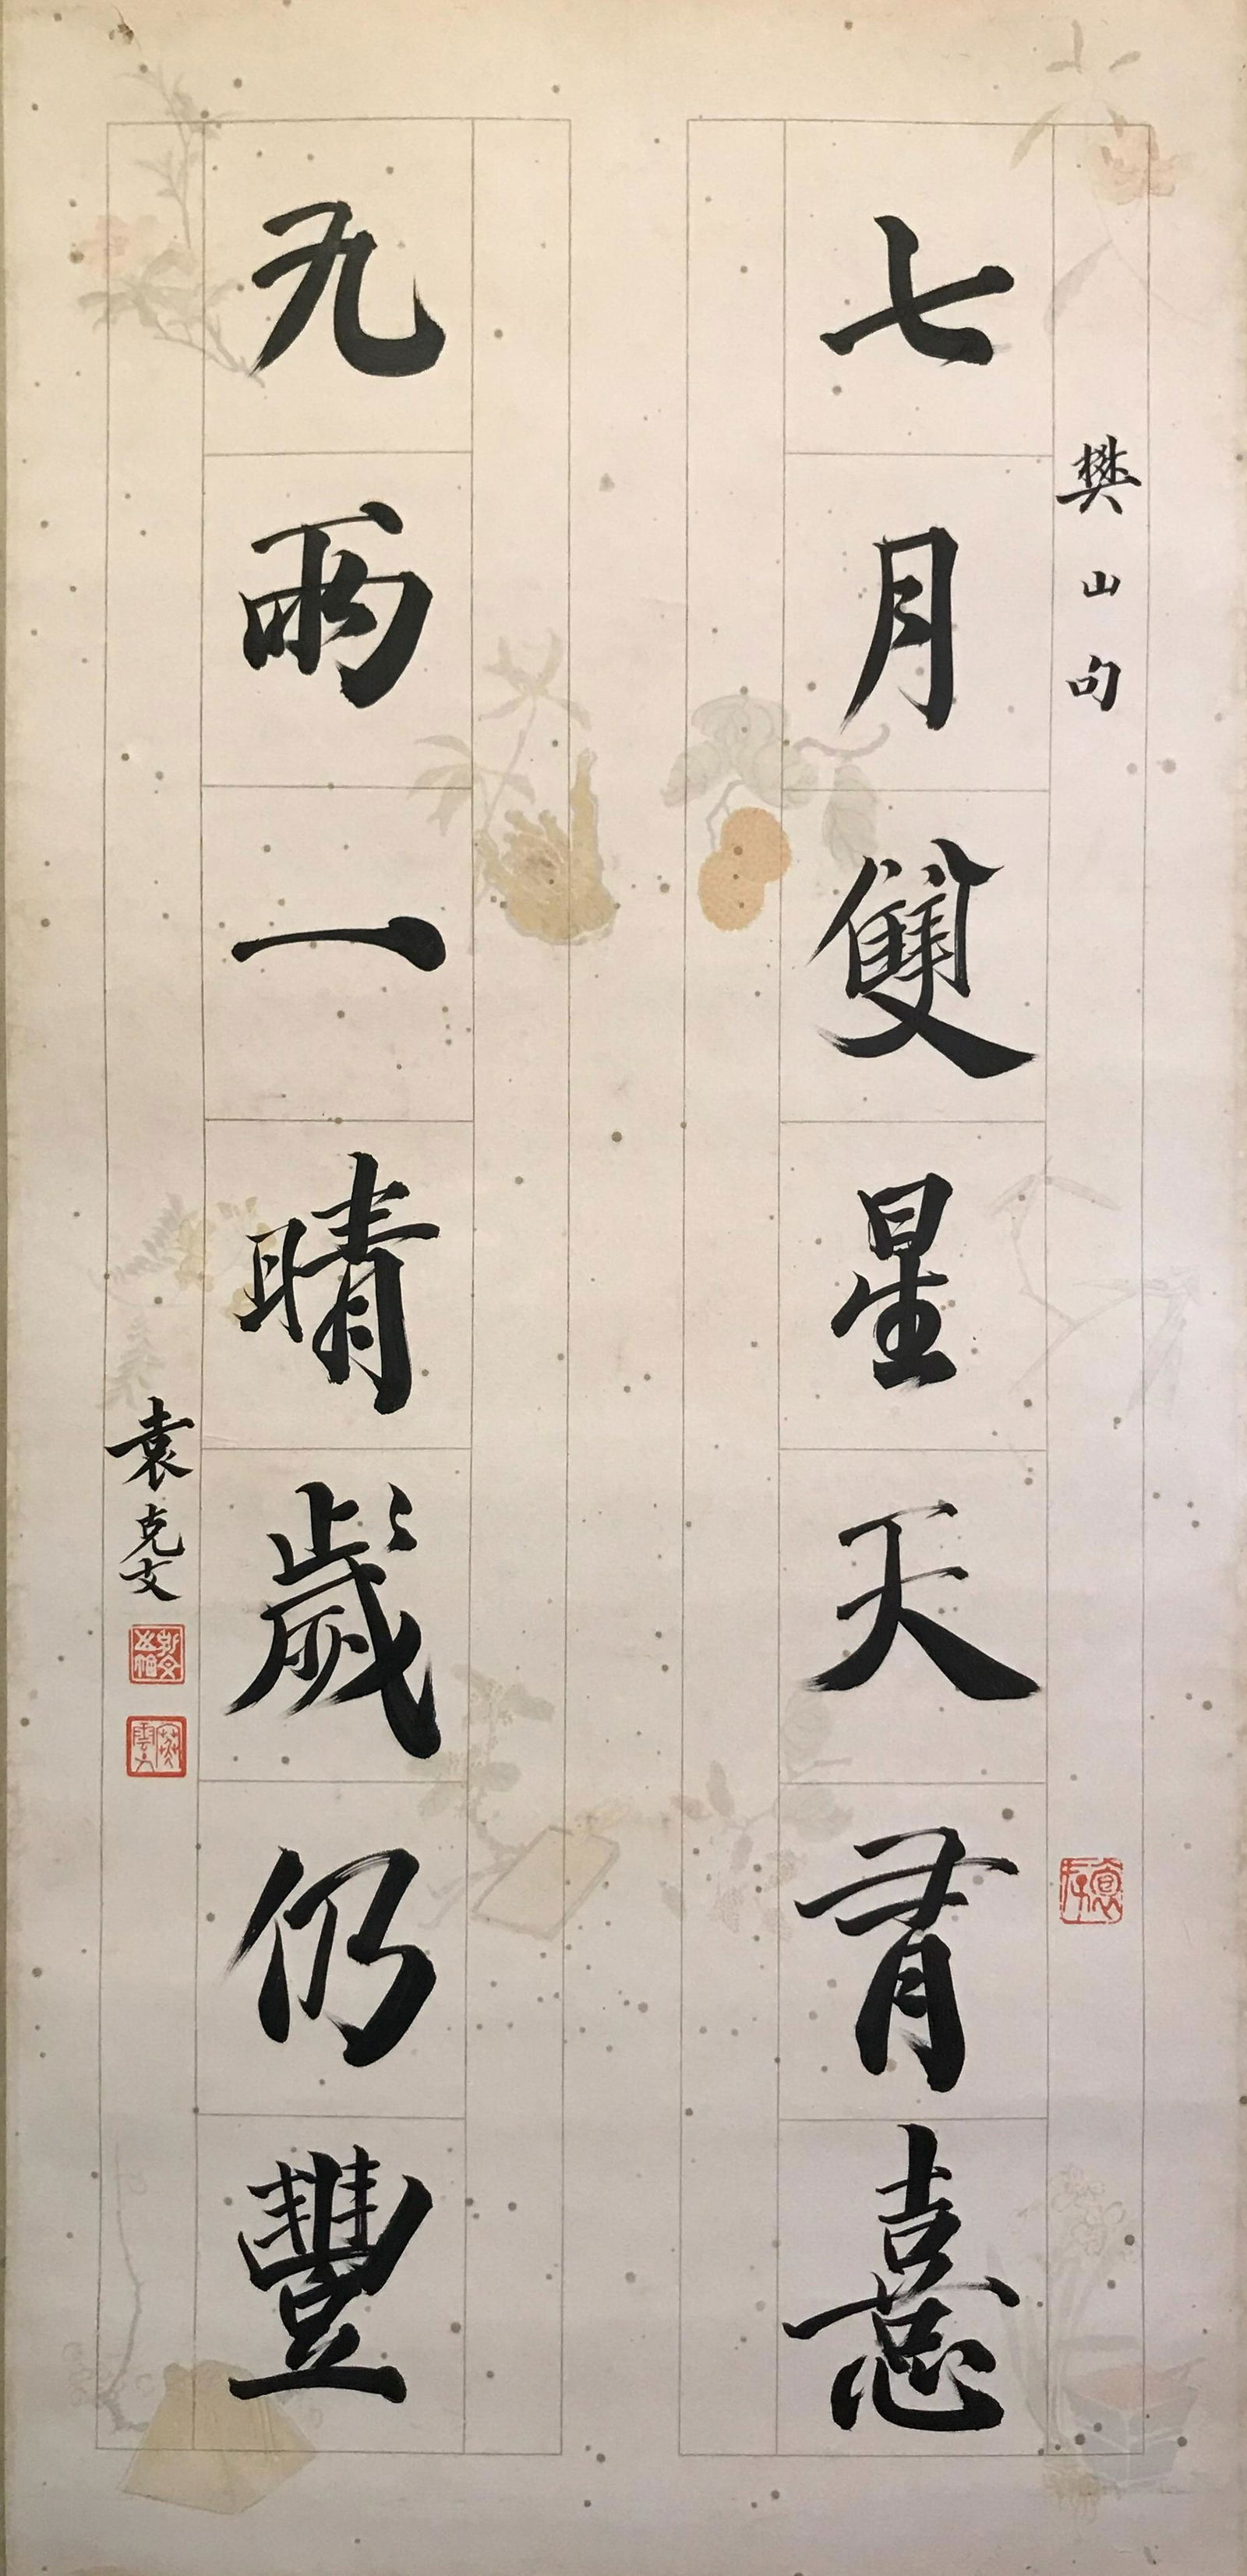 樊山句
七月雙星天有憙
九雨一晴歲仍豐
袁克文